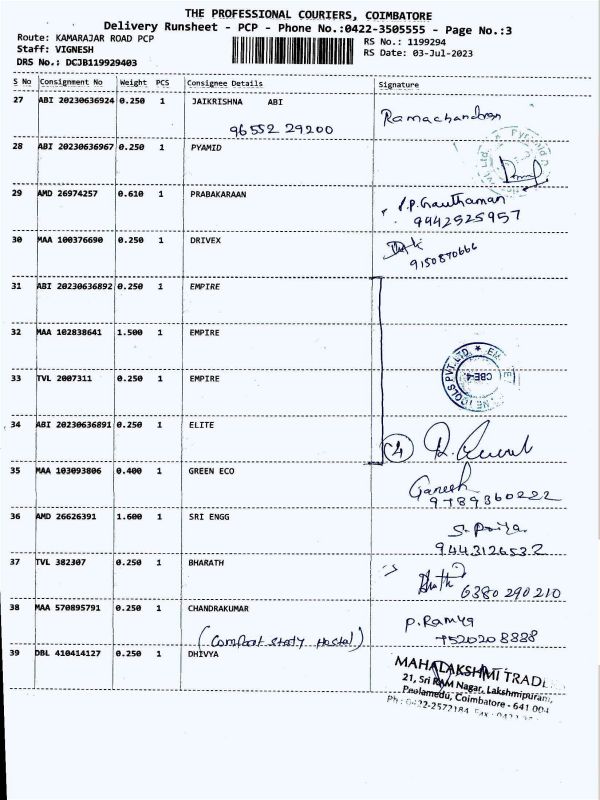 THE PROFESSIONAL COURIERS, COIMBATORE
Delivery Runsheet - PCP - Phone No.:0422-3505555 - Page No.:3
Route: KAMARAJAR ROAD PCP RS No.: 1199294
Staff: VIGNESH RS Date: 03-Jul-2023
DRS No.: DCJB119929403
S No Consignment No Weight PCS Consignee Details Signature
27 ABI 20230636924 0.250 1 JAIKRISHNA ABI
96552 29200 Ramachandran
28 ABI 20230636967 0.250 1 PYAMID
29 AMD 26974257 0.610 1 PRABAKARAAN P.Gauthaman
9942525957
30 MAA 100376690 0.250 1 DRIVEX
9150870666
31 ABI 20230636892 0.250 1 EMPIRE
32 MAA 102838641 1.500 1 EMPIRE
33 TVL 2007311 0.250 1 EMPIRE
PVT. LTD. * EM
CBE-4
34 ABI 20230636891 0.250 1 ELITE
4
35 MAA 103093806 0.400 1 GREEN ECO Ganesh
9789360222
36 AMD 26626391 1.600 1 SRI ENGG S. Priya
9443126532
37 TVL 382307 0.250 1 BHARATH
6380 290 210
38 MAA 570895791 0.250 1 CHANDRAKUMAR P. Ramya
(Comfort study Hostel) 7520208888
39 DBL 410414127 0.250 1 DHIVYA
MAHALAKSHMI TRADE
21, Sri RAM Nagar, Lakshmipuram,
Peelamedu, Coimbatore - 641 004
Ph : 0422-2572184